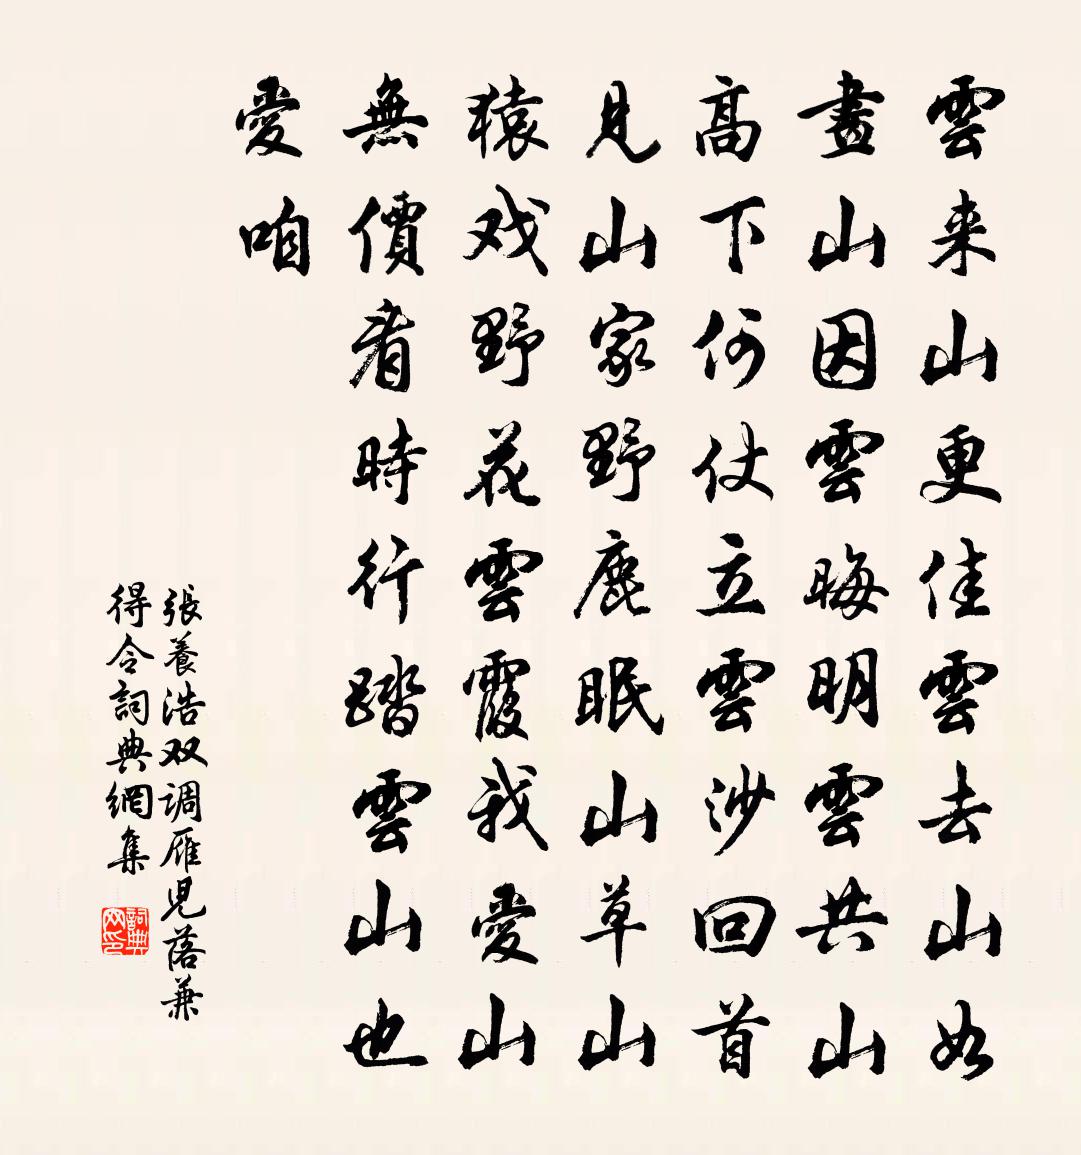 雲来山更佳雲去山如
畫山因雲晦明雲共山
高下倚仗立雲沙回首
見山家野鹿眠山草山
猿戏野花雲霞我愛山
無價看時行踏雲山也
愛咱
張養浩双调雁児落兼
得令詞典網集
詞典
网印